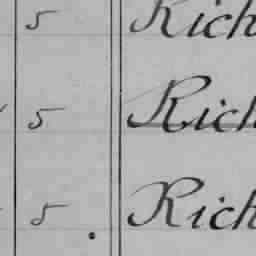 5 Rich
5 Rich
5 Rich